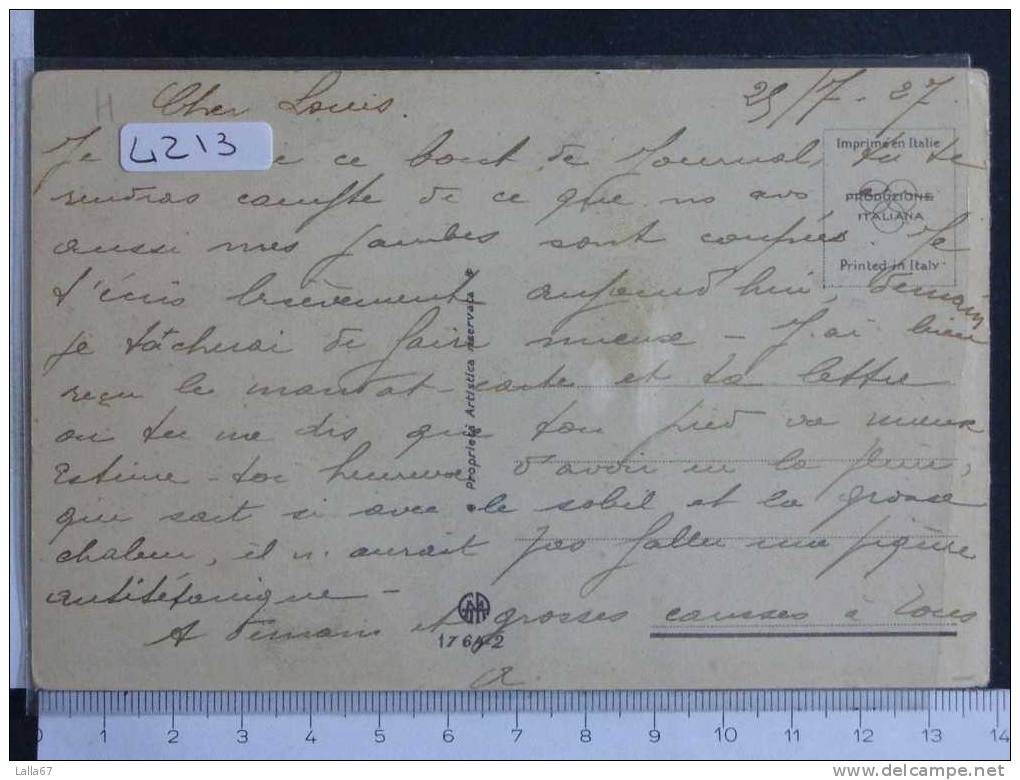 Cher Louis. 25/7-27.
H
Je ce bout de Journal, tu te
L213
rendras compte de ce que ns avo
aussi mes jambes sont coupées. Je
t'écris brièvement aujourd'hui, demain
je tâcherai de faire mieux - J'ai bien
reçu le mandat-carte et ta lettre
ou tu me dis que ton pied va mieux
Estime-toi heureux d'avoir eu la pluie,
qui sait si avec le soleil et la grosse
chaleur, il n'aurait pas fallu une piqûre
antitétanique -
A demain et grosses causses à Tous
a.
Imprimé en Italie
PRODUZIONE
ITALIANA
Printed in Italy
Proprietà Artistica riservata
17642
0 1 2 3 4 5 6 7 8 9 10 11 12 13 14
Lalla67
delcampe.net